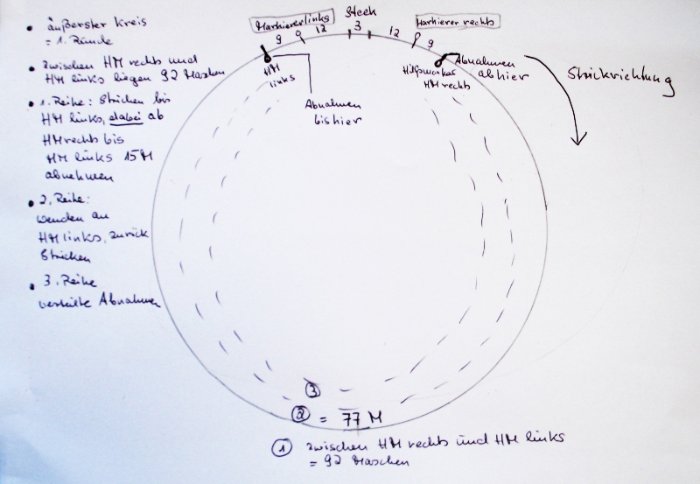 äußerster Kreis
= 1. Runde
zwischen HM rechts und
HM links liegen 92 Maschen
1. Reihe: Stricken bis
HM links, dabei ab
HM rechts bis
HM links 15 M
abnehmen
2. Reihe:
wenden an
HM links, zurück
stricken
3. Reihe
verteilte Abnahmen
Markierer links
Steek
Markierer rechts
9 12 3 12 9
HM
links
Abnahmen
bis hier
Abnahmen
ab hier
Hilfsmarker
HM rechts
Strickrichtung
3
2 = 77 M
1 zwischen HM rechts und HM links
= 92 Maschen